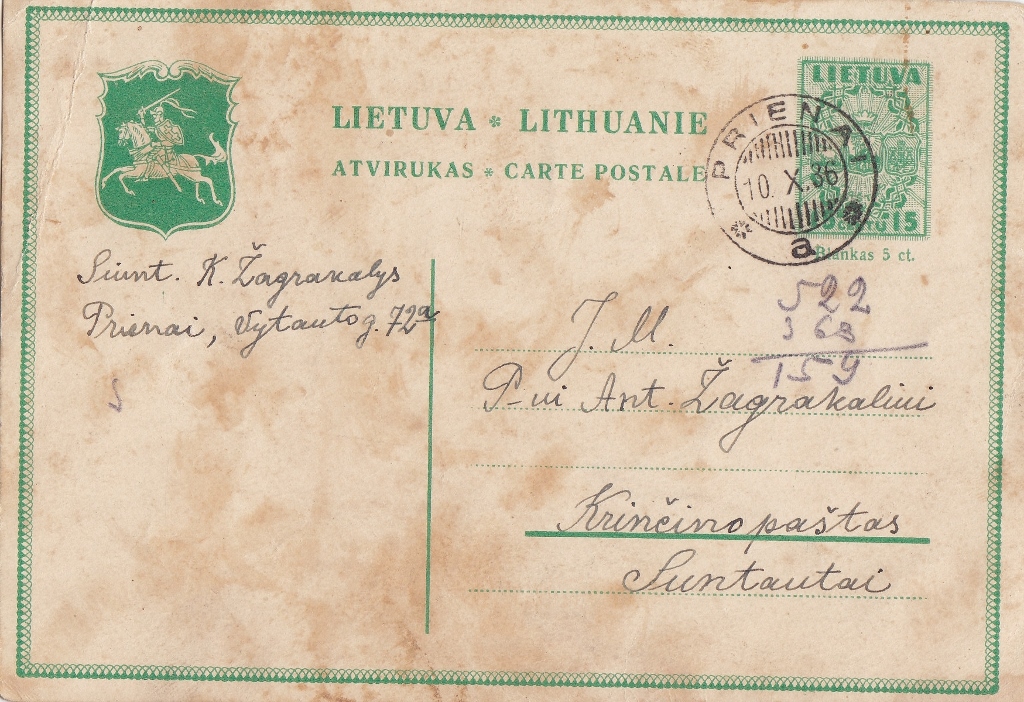 LIETUVA * LITHUANIE
ATVIRUKAS * CARTE POSTALE
LIETUVA
15 CENTŲ 15
Blankas 5 ct.
PRIENAI
10. X. 36
a
Siunt. K. Žagrakalys
Prienai, Vytauto g. 72a
5
522
368
159
J. M.
P-ui Ant. Žagrakaliui
Krinčino paštas
Suntautai